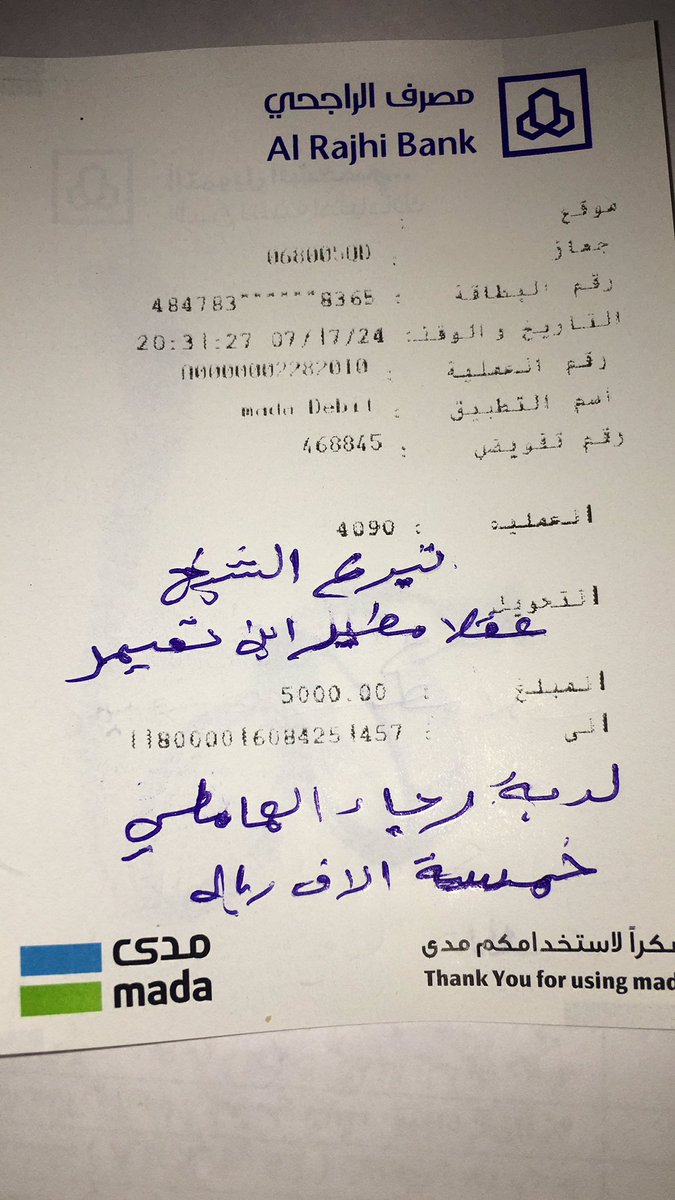 مصرف الراجحي
Al Rajhi Bank
موقع :
جهاز : 0680050D
رقم البطاقة : 484783******8365
التاريخ و الوقت: 07/17/24 20:31:27
رقم العملية : 00000002282010
اسم التطبيق : mada Debit
رقم تفويض : 468845
العملية : 4090
تبرع الشيخ
التحويل
عقلا مطير ابن نعيمر
المبلغ : 5000.00
الى : 118000016084251457
لدية رجاء الهاملي
خمسة الاف ريال
مدى
mada
شكراً لاستخدامكم مدى
Thank You for using mad